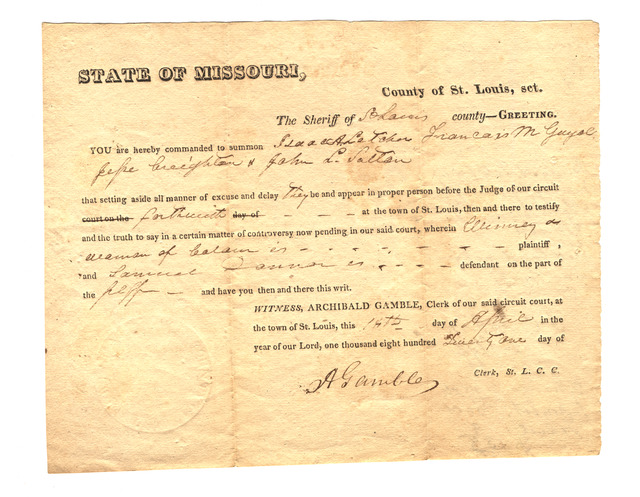 STATE OF MISSOURI,
County of St. Louis, sct.
The Sheriff of St Louis county—GREETING.
YOU are hereby commanded to summon Isaac A Letcher Francois M Guyol
Jesse Creighton & John L Sutton
that setting aside all manner of excuse and delay they be and appear in proper person before the Judge of our circuit
court on the forthwith day of - - - - at the town of St. Louis, then and there to testify
and the truth to say in a certain matter of controversy now pending in our said court, wherein Winney a
woman of Colour is - - - - - - plaintiff,
and Samuel is - - - - defendant on the part of
the plff - and have you then and there this writ.
WITNESS, ARCHIBALD GAMBLE, Clerk of our said circuit court, at
the town of St. Louis, this 14th day of April in the
year of our Lord, one thousand eight hundred Twenty one day of
A Gamble
Clerk, St. L. C. C.